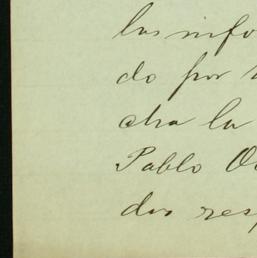 las info
do por
cha la
Pablo O
dos res